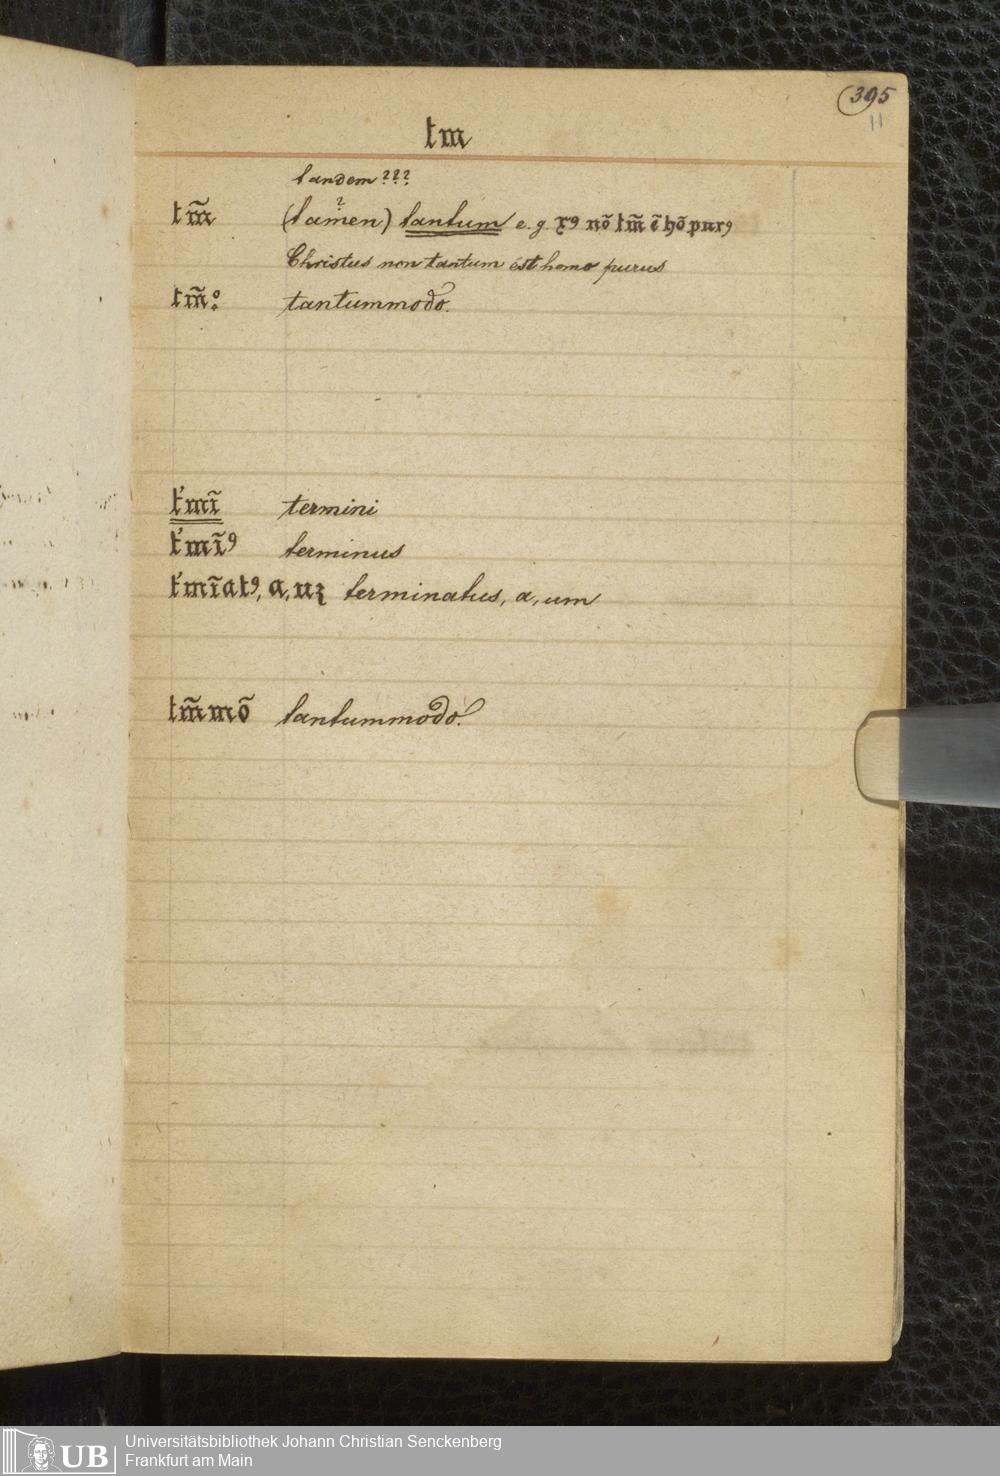 395
11
tm
tandem???
tm̃ (tamen) ? tantum e. g. xꝰ nõ tm̃ ẽ hõ purꝰ
Christus non tantum est homo purus
tm̃o tantummodo.
t'mĩ termini
t'mĩꝰ terminus
t'mĩatꝰ, a, uꝫ terminatus, a, um
tm̃mõ tantummodo!
UB
Universitätsbibliothek Johann Christian Senckenberg
Frankfurt am Main